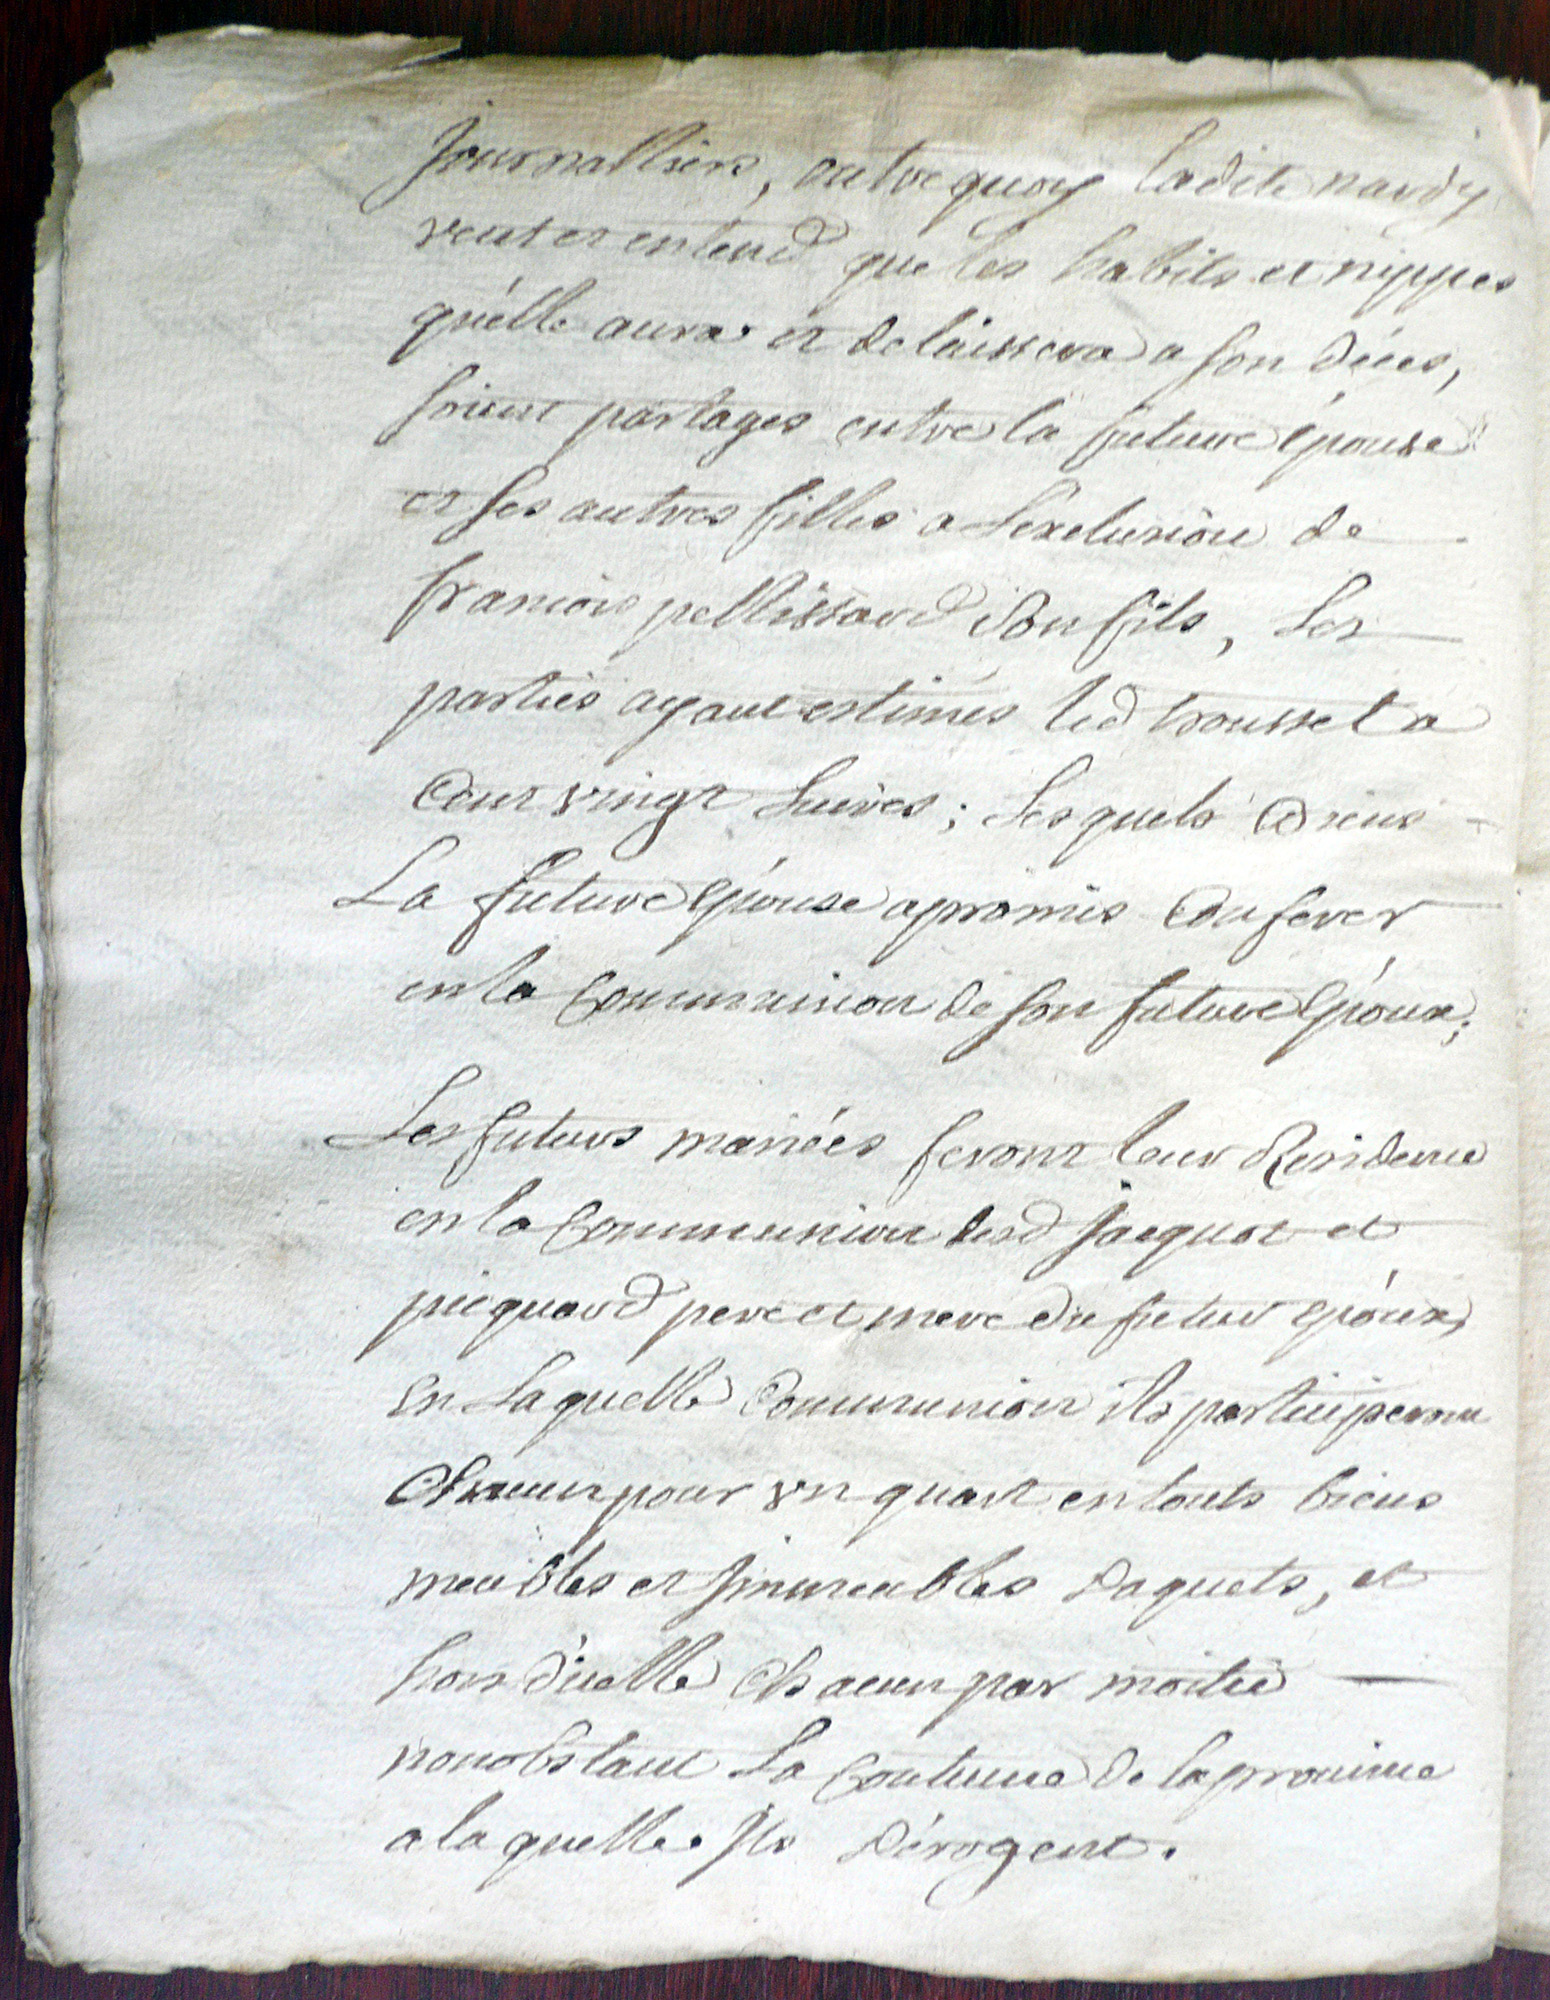 journalliers, outre quoy ladite nardy
veut et entend que les habits et nippes
qu'elle aura et delaissera a son décès,
soient partages entre la future épouse
et ses autres filles a L'exclusion de
francois pellissard son fils, Les
parties ayant estimés led trousset a
Cent vingt Livres; Lesquels Biens
La future Epouse a promis Conferer
en la Communion de son future Epoux;
Les futurs mariées feront leur Residence
en la Communion desd jacquot et
picquard pere et mere du futur époux,
En Laquelle Communion ils participeront
Chacun pour un quart en touts biens
meubles et jmmeubles d'aquets, et
hors d'icelle Chacun par moitié
nonobstant La Coutume de la province
a la quelle jls dérogent.